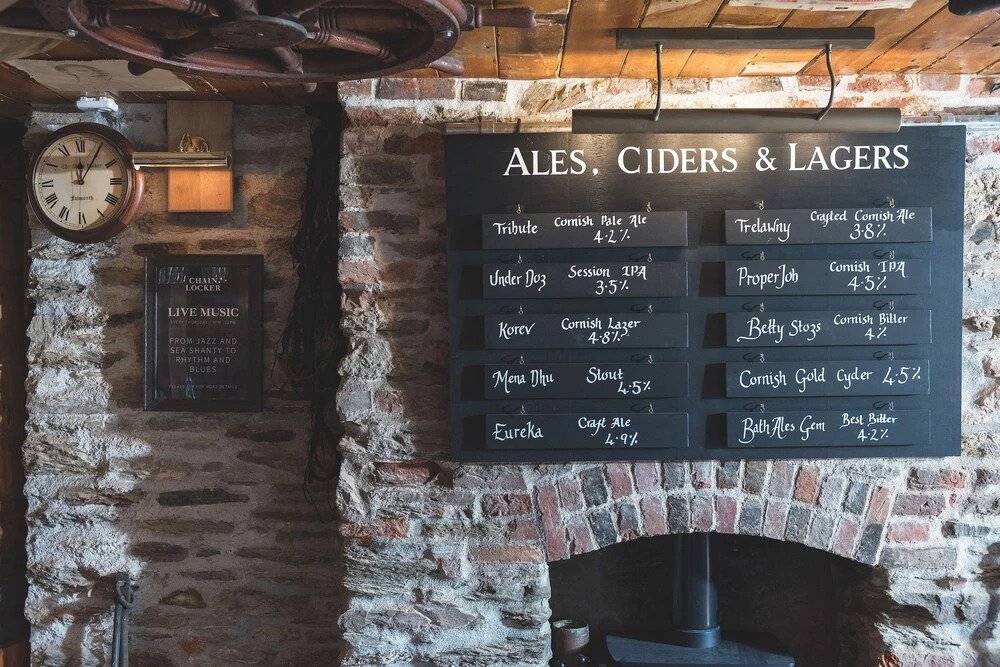 Falmouth
CHAIN
LOCKER
LIVE MUSIC
FROM JAZZ AND
SEA SHANTY TO
RHYTHM AND
BLUES
ALES, CIDERS & LAGERS
Tribute Cornish Pale Ale
4.2%
Under Dog Session IPA
3.5%
Korev Cornish Lager
4.8%
Mena Dhu Stout
4.5%
Eureka Craft Ale
4.9%
Trelawny Crafted Cornish Ale
3.8%
Proper Job Cornish IPA
4.5%
Betty Stogs Cornish Bitter
4%
Cornish Gold Cyder 4.5%
Bath Ales Gem Best Bitter
4.2%